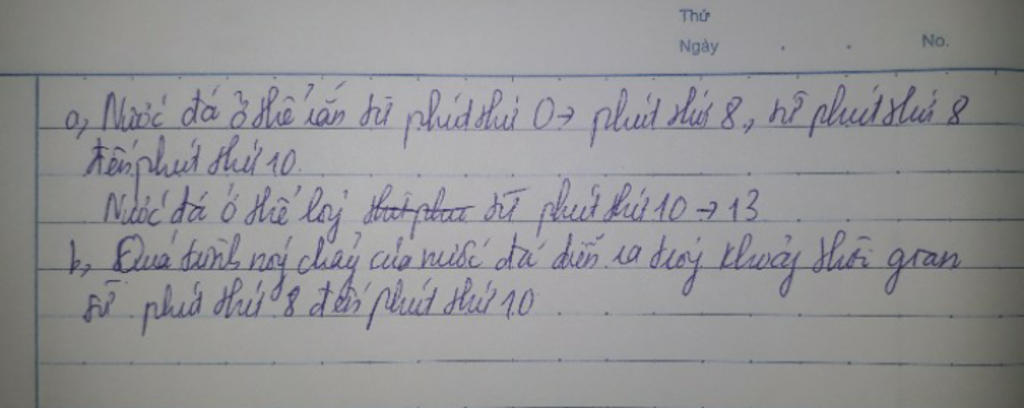 Thứ
Ngày . . No.
a, Nước đá ở thể rắn từ phút thứ 0 → phút thứ 8, từ phút thứ 8
đến phút thứ 10.
Nước đá ở thể lỏng từ phút thứ 10 → 13
b, Quá trình nóng chảy của nước đá diễn ra trong khoảng thời gian
từ phút thứ 8 đến phút thứ 10